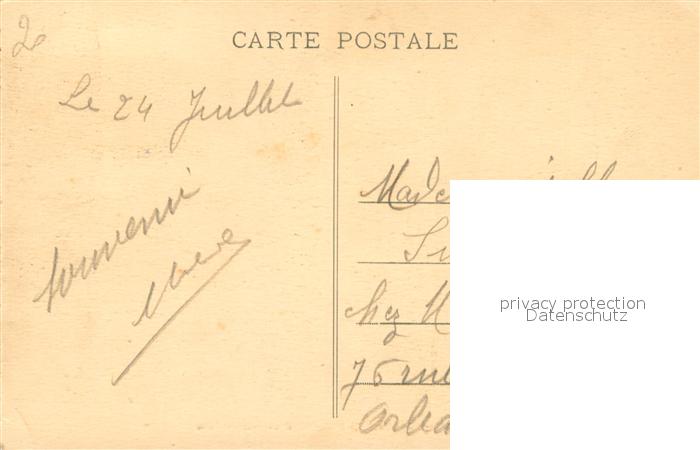 2
CARTE POSTALE
Le 24 Juillet
Souvenir
Made
chez M
75 rue
Orlea
privacy protection
Datenschutz